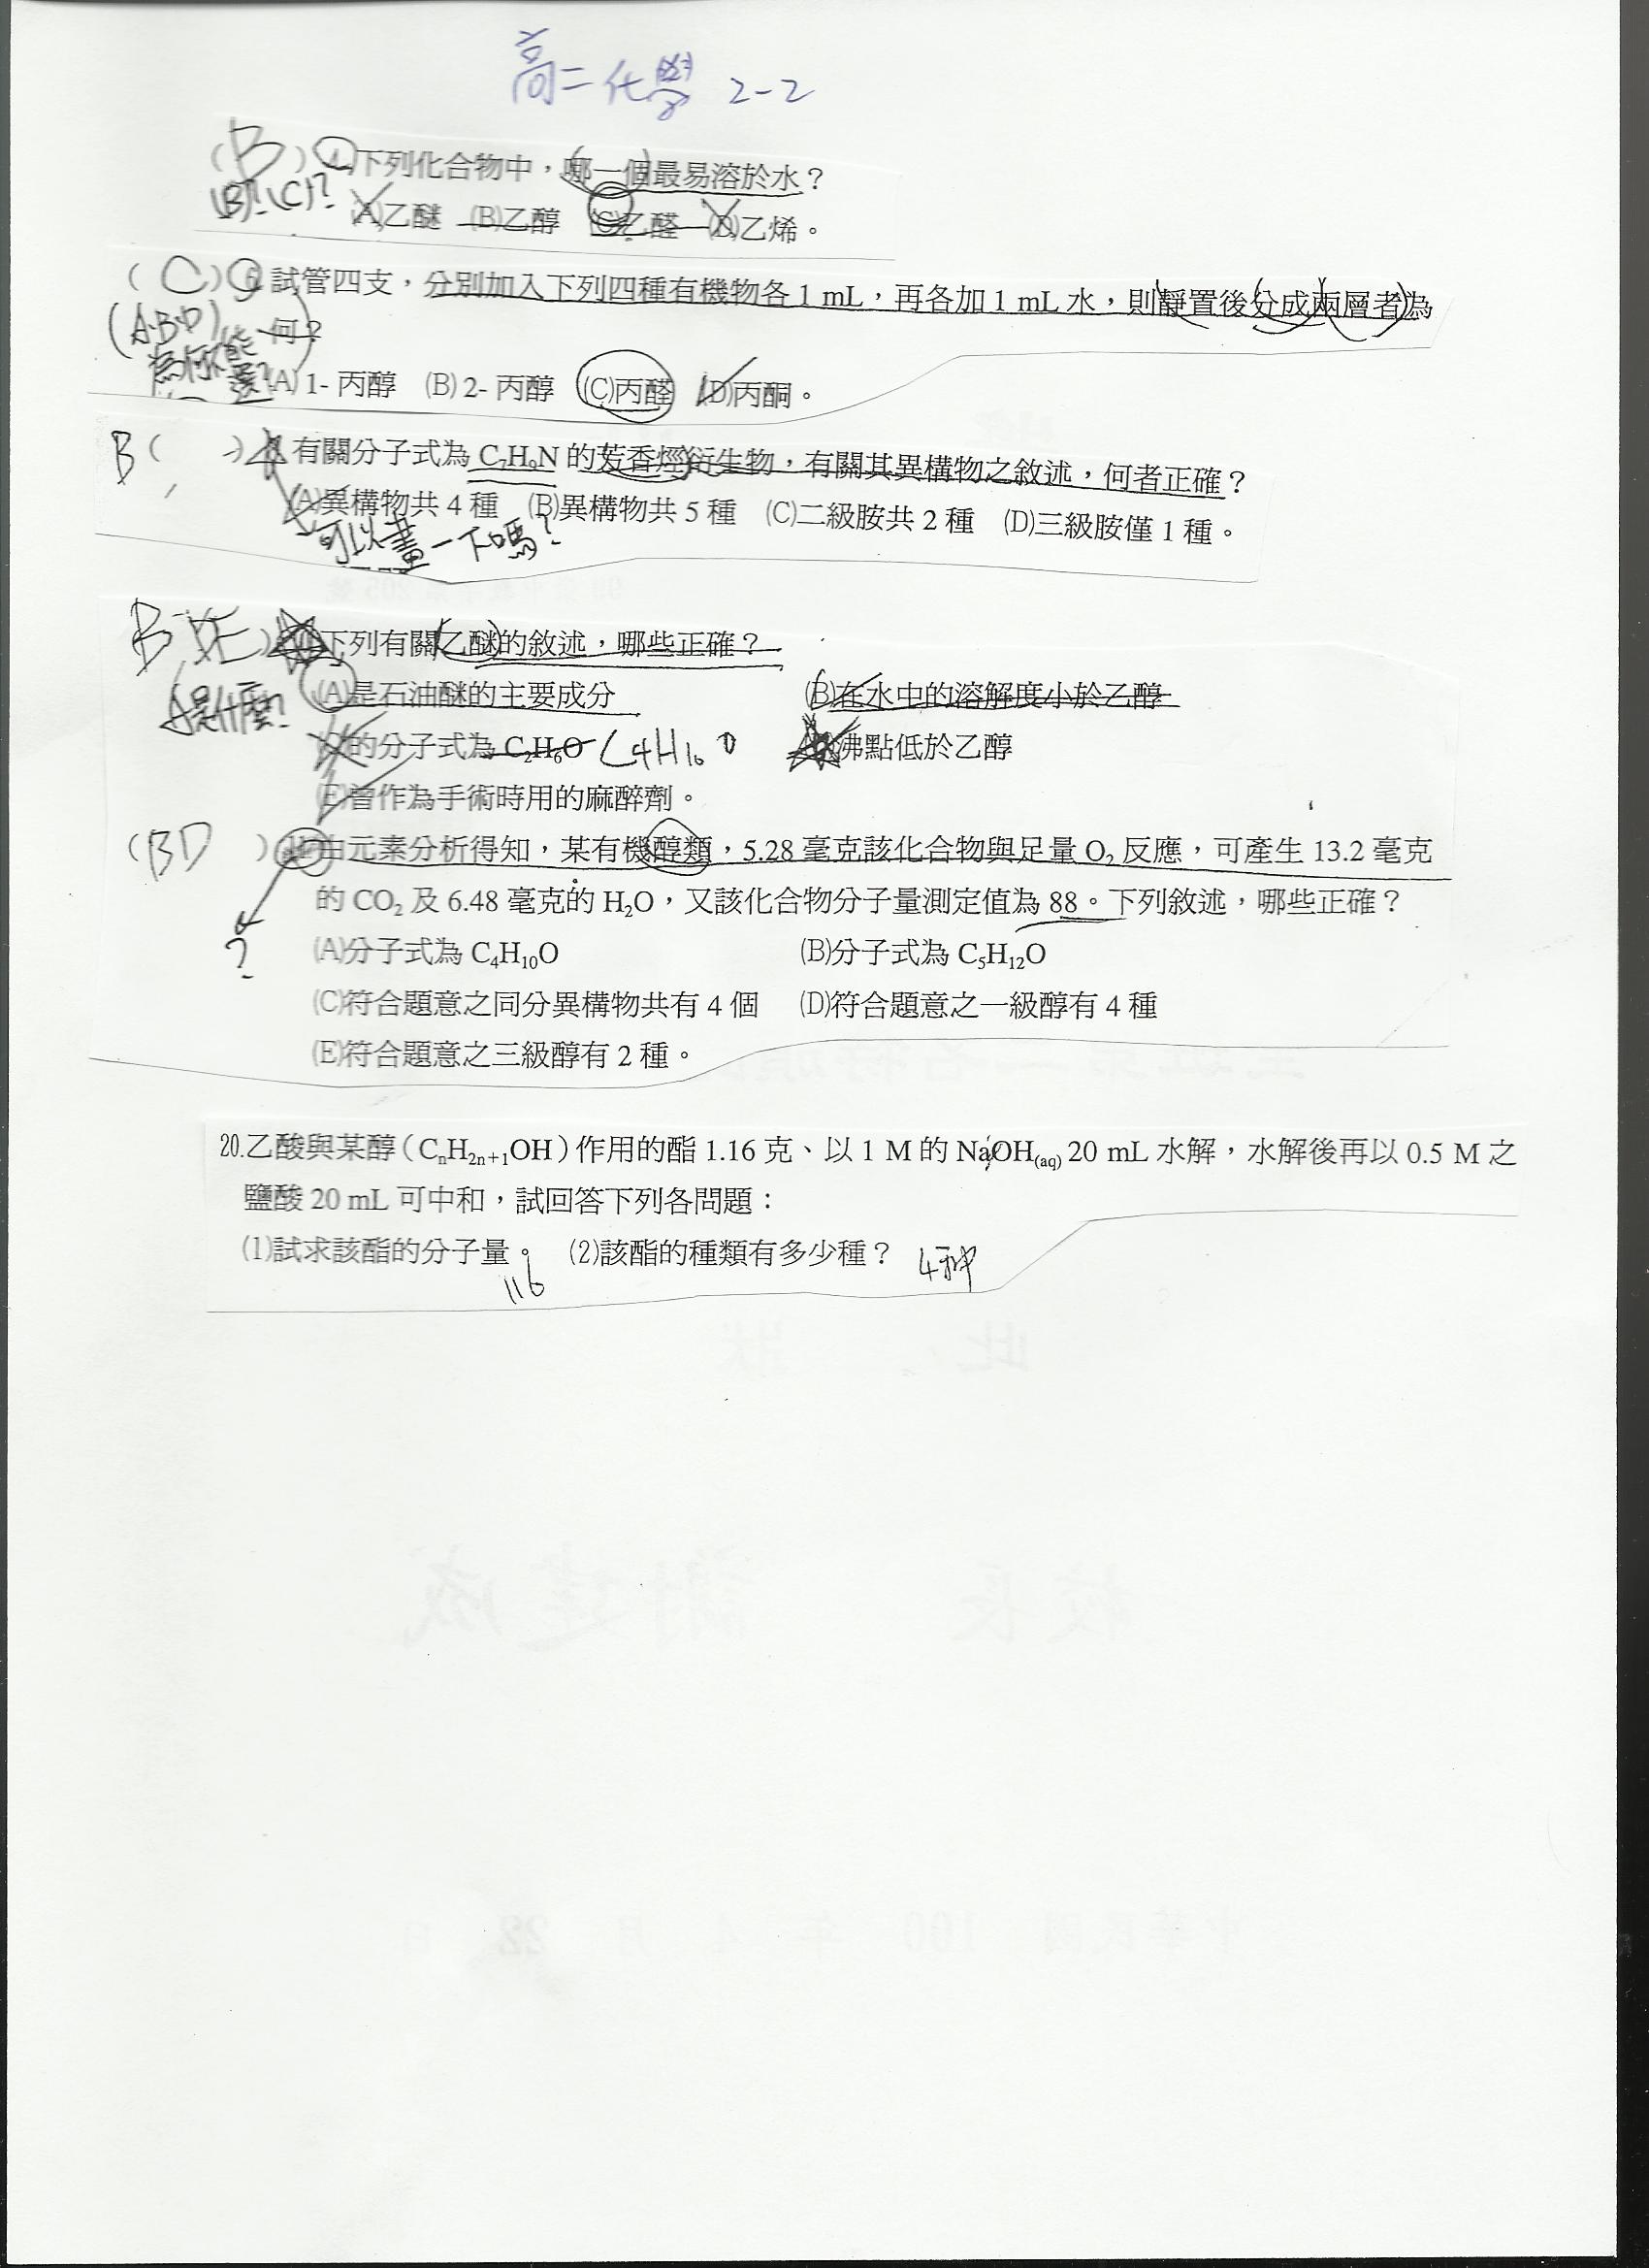 高二化學 2-2
(B) 1.下列化合物中，哪一個最易溶於水？
(B)? (C)? (A)乙醚 (B)乙醇 (C)乙醛 (D)乙烯。
(C) 試管四支，分別加入下列四種有機物各 1 mL，再各加 1 mL 水，則靜置後分成兩層者為
(A.B.D) 何？
為何不能選? (A) 1- 丙醇 (B) 2- 丙醇 (C)丙醛 (D)丙酮。
B ( ) 有關分子式為 C₇H₉N 的芳香烴衍生物，有關其異構物之敘述，何者正確？
(A)異構物共 4 種 (B)異構物共 5 種 (C)二級胺共 2 種 (D)三級胺僅 1 種。
可以畫一下嗎?
B DE ) 下列有關乙醚的敘述，哪些正確？
A是什麼? (A)是石油醚的主要成分 (B)在水中的溶解度小於乙醇
的分子式為 C₂H₆O C4H10O 沸點低於乙醇
(E)曾作為手術時用的麻醉劑。
(BD ) 由元素分析得知，某有機醇類，5.28 毫克該化合物與足量 O₂ 反應，可產生 13.2 毫克
的 CO₂ 及 6.48 毫克的 H₂O，又該化合物分子量測定值為 88。下列敘述，哪些正確？
?
(A)分子式為 C₄H₁₀O (B)分子式為 C₅H₁₂O
(C)符合題意之同分異構物共有 4 個 (D)符合題意之一級醇有 4 種
(E)符合題意之三級醇有 2 種。
20.乙酸與某醇（CₙH₂ₙ₊₁OH）作用的酯 1.16 克、以 1 M 的 NaOH(aq) 20 mL 水解，水解後再以 0.5 M 之
鹽酸 20 mL 可中和，試回答下列各問題：
(1)試求該酯的分子量。 (2)該酯的種類有多少種？ 4种
116